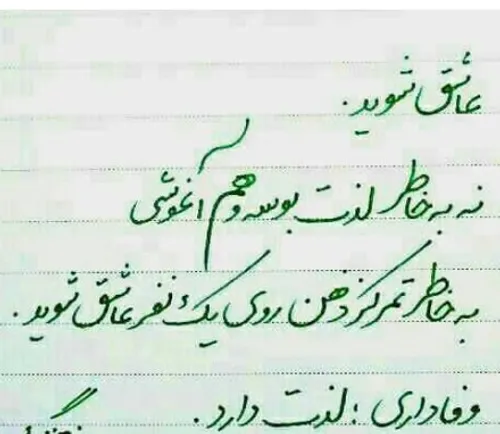 عاشق شوید.
نه به خاطر لذت بوسه و هم آغوشی
به خاطر تمرکز ذهن روی یک نفر عاشق شوید.
وفاداری؛ لذت دارد.